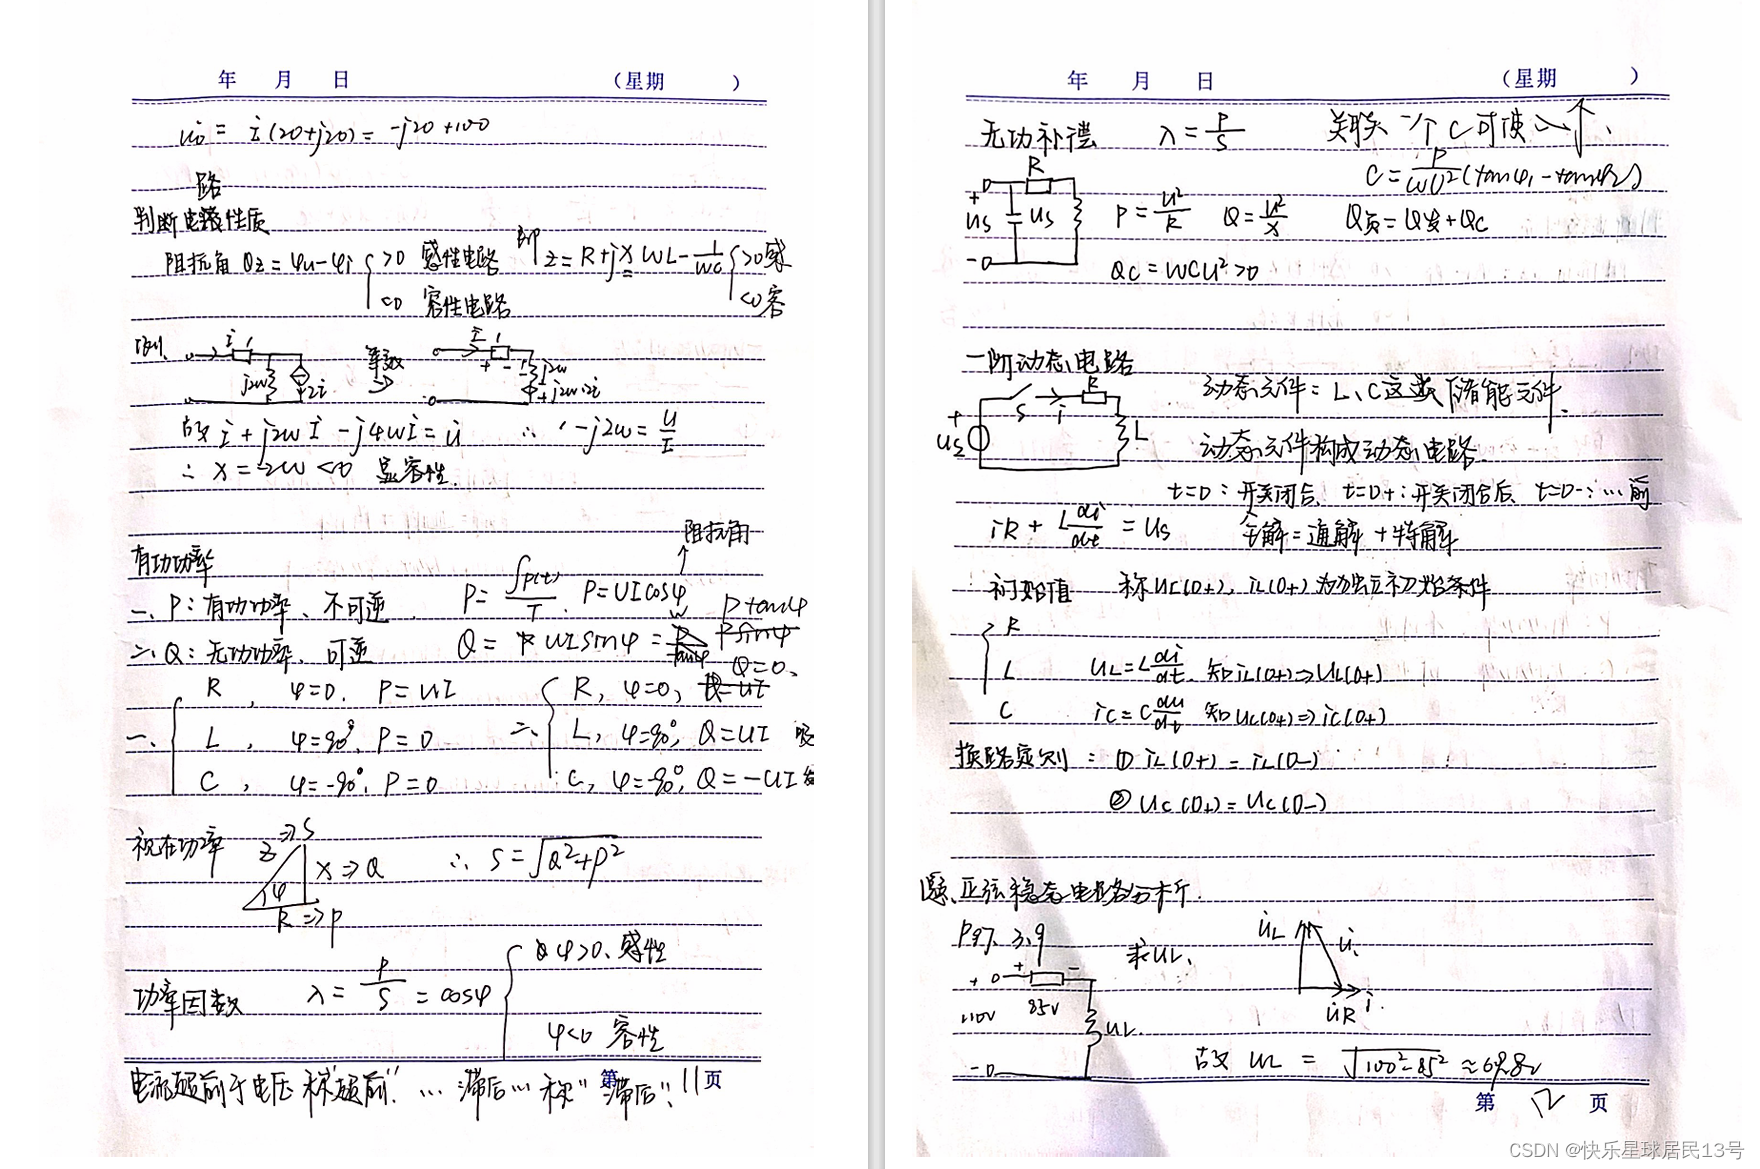 年 月 日 (星期 )
u̇ = i(20+j20) = -j20+100
路
判断电路性质
阻抗角 θz = φu-φi >0 感性电路 即 z = R+jX WL-1/WC >0感
<0 容性电路 <0容
例、 i 1 j2w 2i 等效 I 1 + - j2w + j2w·2i
故 i + j2w I - j4w i = u̇ ∴ 1-j2w = U/I
∴ X = -2w <0 显容性.
阻抗角
有功功率
一、P: 有功功率、不可逆 P = ∫p(t)/T . P = UIcosφ Ptanφ
二、Q: 无功功率、可逆 Q = UIsinφ = Q=0、
一、 R , φ=0. P = UI 二、 R, φ=0,
L , φ=90°, P = 0 L, φ=90°, Q=UI 吸
C , φ=-90°, P = 0 C, φ=-90°, Q=-UI 发
视在功率 Z ⇒ S X ⇒ Q φ R ⇒ P ∴ S = √Q²+P²
功率因数 λ = P/S = cosφ φ>0、感性
φ<0 容性
电流超前于电压 称"超前". … 滞后… 称"滞后".
第 11 页
年 月 日 (星期 )
无功补偿 λ = P/S 关联 一个 C 可使 λ ↑、
C = P/WU²(tanφ1-tanφ2)
+ us - R us P = U²/R Q = U²/X Q负 = Q发+QC
QC = WCU²>0
一阶动态电路
+ us S i R L 动态元件 = L、C这类 储能元件.
动态元件构成动态电路.
t=0: 开关闭合、t=0+: 开关闭合后、t=0-: … 前
iR + L di/dt = Us 全解 = 通解 + 特解
初始值 称 uc(0+), iL(0+) 为独立初始条件
R
L uL = L di/dt, 知 iL(0+) ⇒ uL(0+)
C ic = C du/dt 知 uc(0+) ⇒ ic(0+)
换路定则 : ① iL(0+) = iL(0-)
② uc(0+) = uc(0-)
题、正弦稳态电路分析.
P97. 3.9 求UL、 u̇L u̇ u̇R i
+ + - 110V 85V UL -
故 UL = √100²-85² ≈ 69.8v
第 12 页
CSDN @快乐星球居民13号